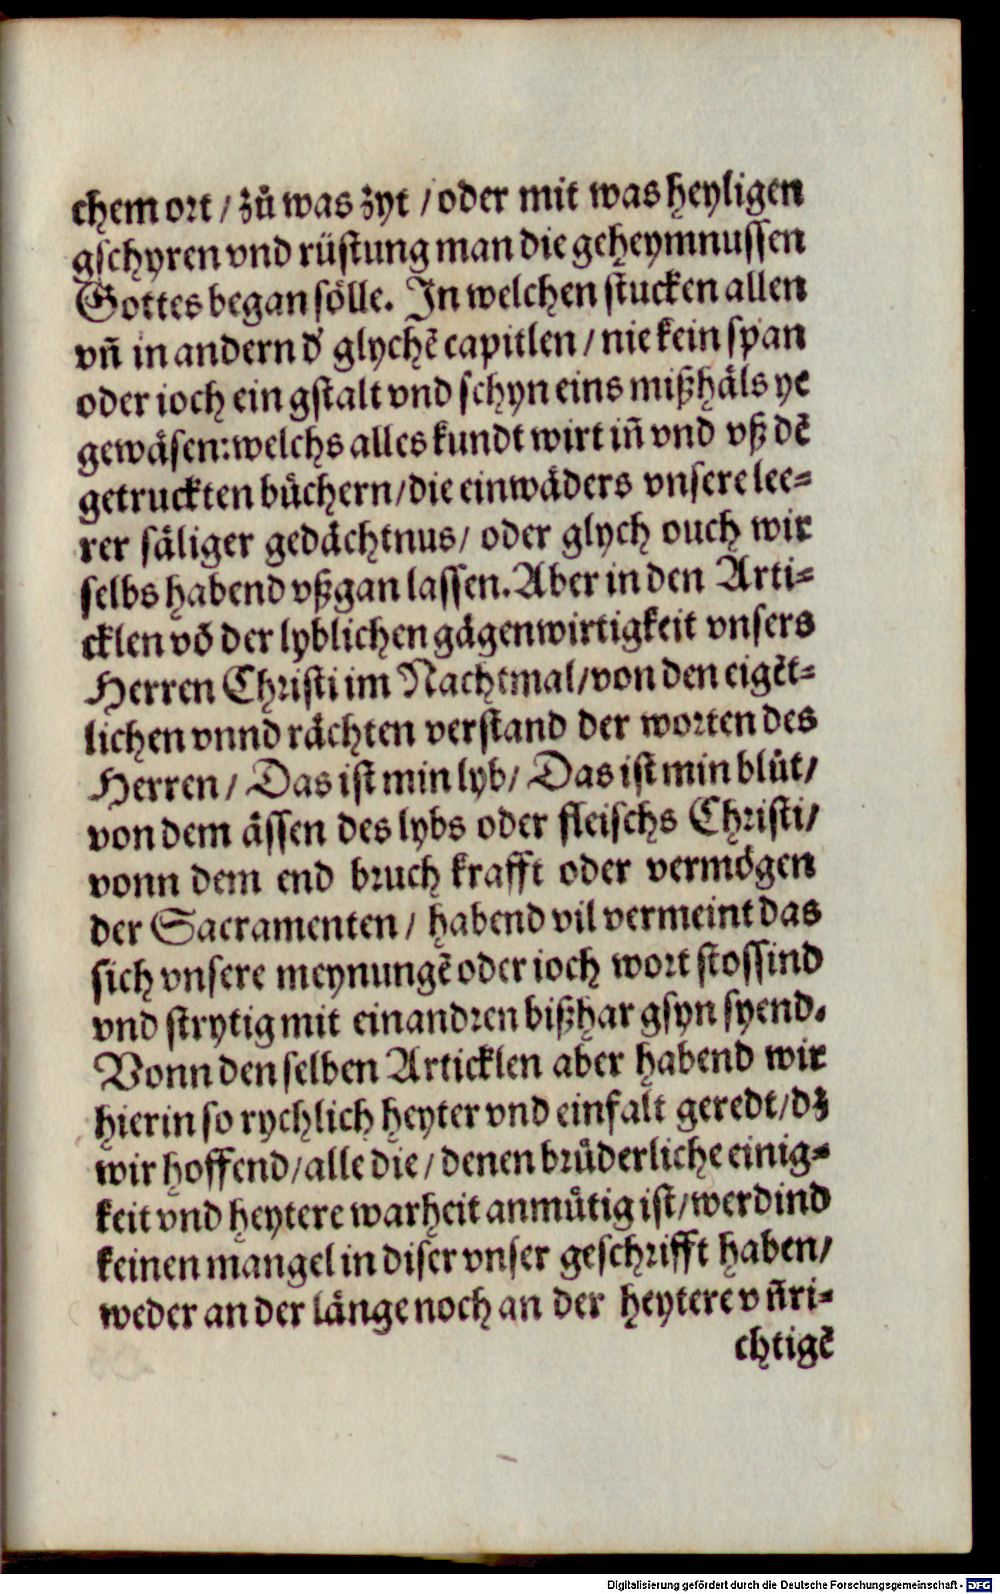 chem ort / zů was zyt / oder mit was heyligen
gschyren vnd rüstung man die geheymnussen
Gottes began sölle. In welchen stucken allen
vñ in andern d' glychē capitlen / nie kein span
oder ioch ein gstalt vnd schyn eins mißhäls ye
gewäsen: welchs alles kundt wirt iñ vnd vß dē
getruckten bůchern / die einwäders vnsere lee⸗
rer säliger gedächtnus / oder glych ouch wir
selbs habend vßgan lassen. Aber in den Arti⸗
cklen vō der lyblichen gägenwirtigkeit vnsers
Herren Christi im Nachtmal / von den eigēt⸗
lichen vnnd rächten verstand der worten des
Herren / Das ist min lyb / Das ist min blůt /
von dem ässen des lybs oder fleischs Christi /
vonn dem end bruch krafft oder vermögen
der Sacramenten / habend vil vermeint das
sich vnsere meynungē oder ioch wort stossind
vnd strytig mit einandren bißhar gsyn syend.
Vonn den selben Articklen aber habend wir
hierin so rychlich heyter vnd einfalt geredt / dz
wir hoffend / alle die / denen brůderliche einig⸗
keit vnd heytere warheit anmůtig ist / werdind
keinen mangel in diser vnser geschrifft haben /
weder an der länge noch an der heytere vñ ri⸗
chtigē
Digitalisierung gefördert durch die Deutsche Forschungsgemeinschaft - DFG